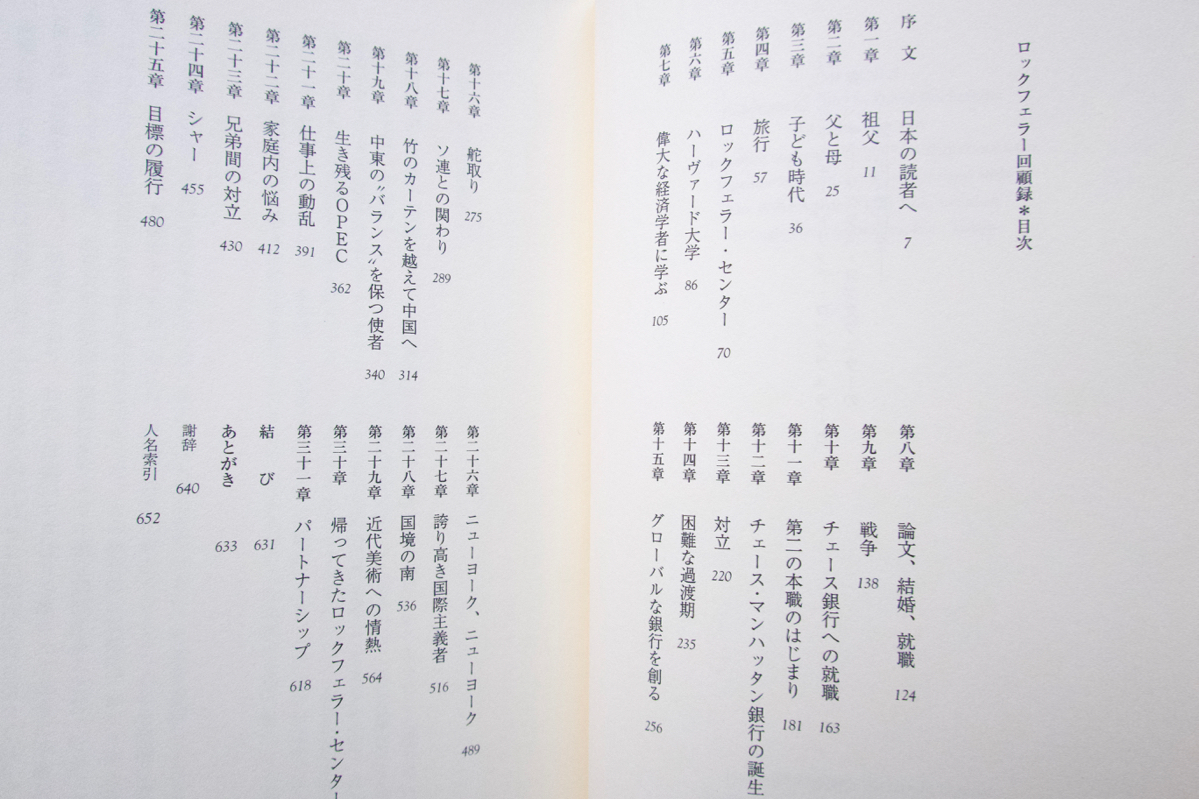 ロックフェラー回顧録＊目次
序文 日本の読者へ 7
第一章 祖父 11
第二章 父と母 25
第三章 子ども時代 36
第四章 旅行 57
第五章 ロックフェラー・センター 70
第六章 ハーヴァード大学 86
第七章 偉大な経済学者に学ぶ 105
第八章 論文、結婚、就職 124
第九章 戦争 138
第十章 チェース銀行への就職 163
第十一章 第二の本職のはじまり 181
第十二章 チェース・マンハッタン銀行の誕生
第十三章 対立 220
第十四章 困難な過渡期 235
第十五章 グローバルな銀行を創る 256
第十六章 舵取り 275
第十七章 ソ連との関わり 289
第十八章 竹のカーテンを越えて中国へ 314
第十九章 中東の〝バランス〟を保つ使者 340
第二十章 生き残るOPEC 362
第二十一章 仕事上の動乱 391
第二十二章 家庭内の悩み 412
第二十三章 兄弟間の対立 430
第二十四章 シャー 455
第二十五章 目標の履行 480
第二十六章 ニューヨーク、ニューヨーク 489
第二十七章 誇り高き国際主義者 516
第二十八章 国境の南 536
第二十九章 近代美術への情熱 564
第三十章 帰ってきたロックフェラー・センター
第三十一章 パートナーシップ 618
結び 631
あとがき 633
謝辞 640
人名索引 652